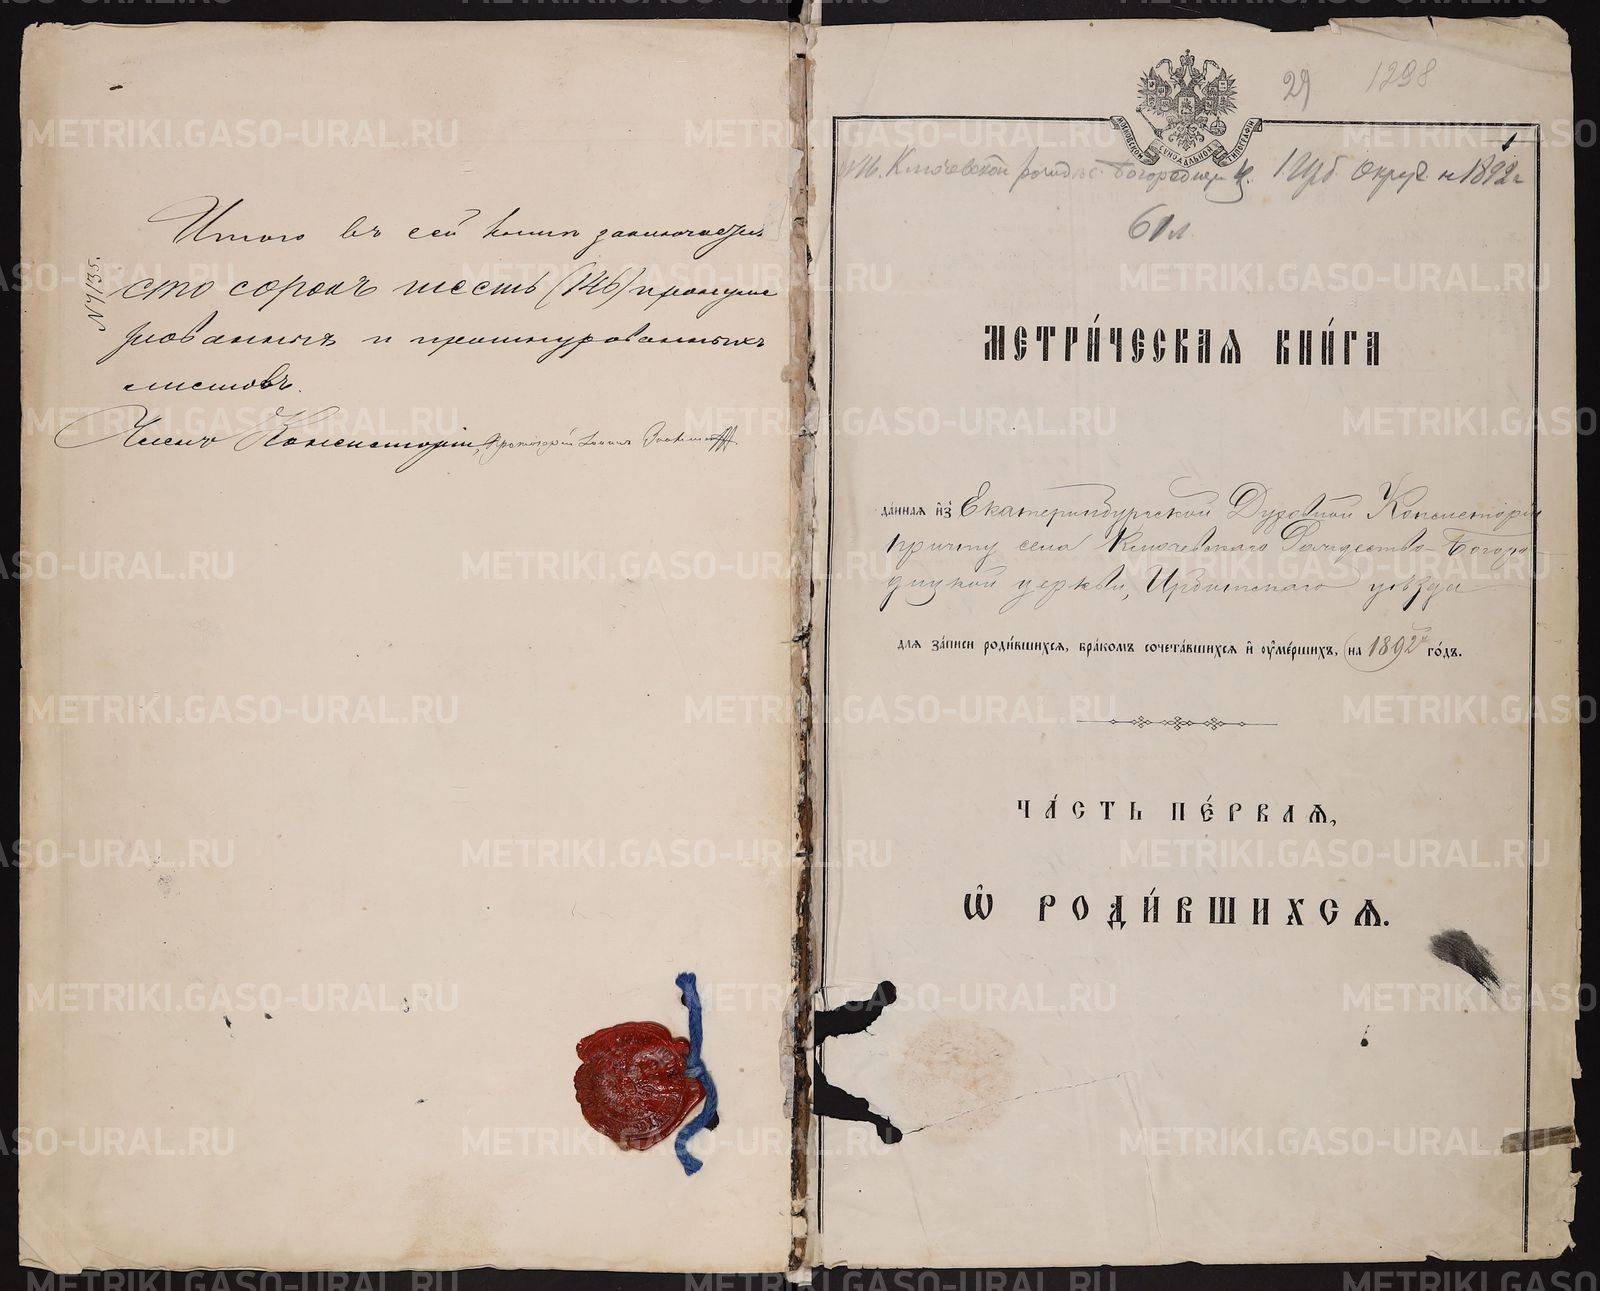 Итого въ сей книгѣ заключается
сто сорокъ шесть (146) пронуме
рованныхъ и прошнурованныхъ
листовъ.
Членъ Консисторіи, Протоіерей Іоаннъ
№ 4135.
29
1298
МОСКОВСКОЙ СѴНОДАЛЬНОЙ ТИПОГРАФІИ
1
Ключевской рожд. Богородицк ц. 1 Ирб. округ н 1892 г
61 л
МЕТРИ́ЧЕСКАѦ КНИ́ГА
да́ннаѧ и҆з̾ Екатеринбургской Духовной Консисторіи
причту села Ключевскаго Рождество-Богоро
дицкой церкви, Ирбитскаго уѣзда
для за́писи роди́вшихсѧ, бра́комъ сочета́вшихсѧ и҆ ᲂу҆ме́ршихъ, на 1892й го́дъ.
ЧА́СТЬ ПЕ́РВАѦ,
Ѽ РОДИ́ВШИХСѦ.
METRIKI.GASO-URAL.RU